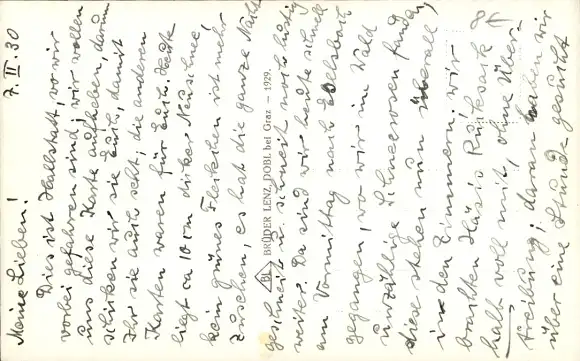 Meine Lieben! 7.II.30
Dies ist Hallstatt, wo wir
vorbei gefahren sind, wir wollen
uns diese Karte aufheben, darum
schicken wir sie Euch, damit
Ihr sie auch seht, die anderen
Karten waren für Euch. Heute
liegt ca 10 cm dicker Neuschnee,
kein grünes Fleckchen ist mehr
zu sehen, es hat die ganze Nacht
BRÜDER LENZ, DOBL bei Graz — 1929.
geschneit u. schneit noch lustig
weiter. Da sind wir heute schnell
am Vormittag nach
gegangen, wo wir im Wald
unzählige Schneerosen fanden,
diese stehen nun überall
in den Zimmern, wir
brachten Rucksack
halb voll mit, ohne Über-
treibung; daran haben wir
über eine Stunde gesucht